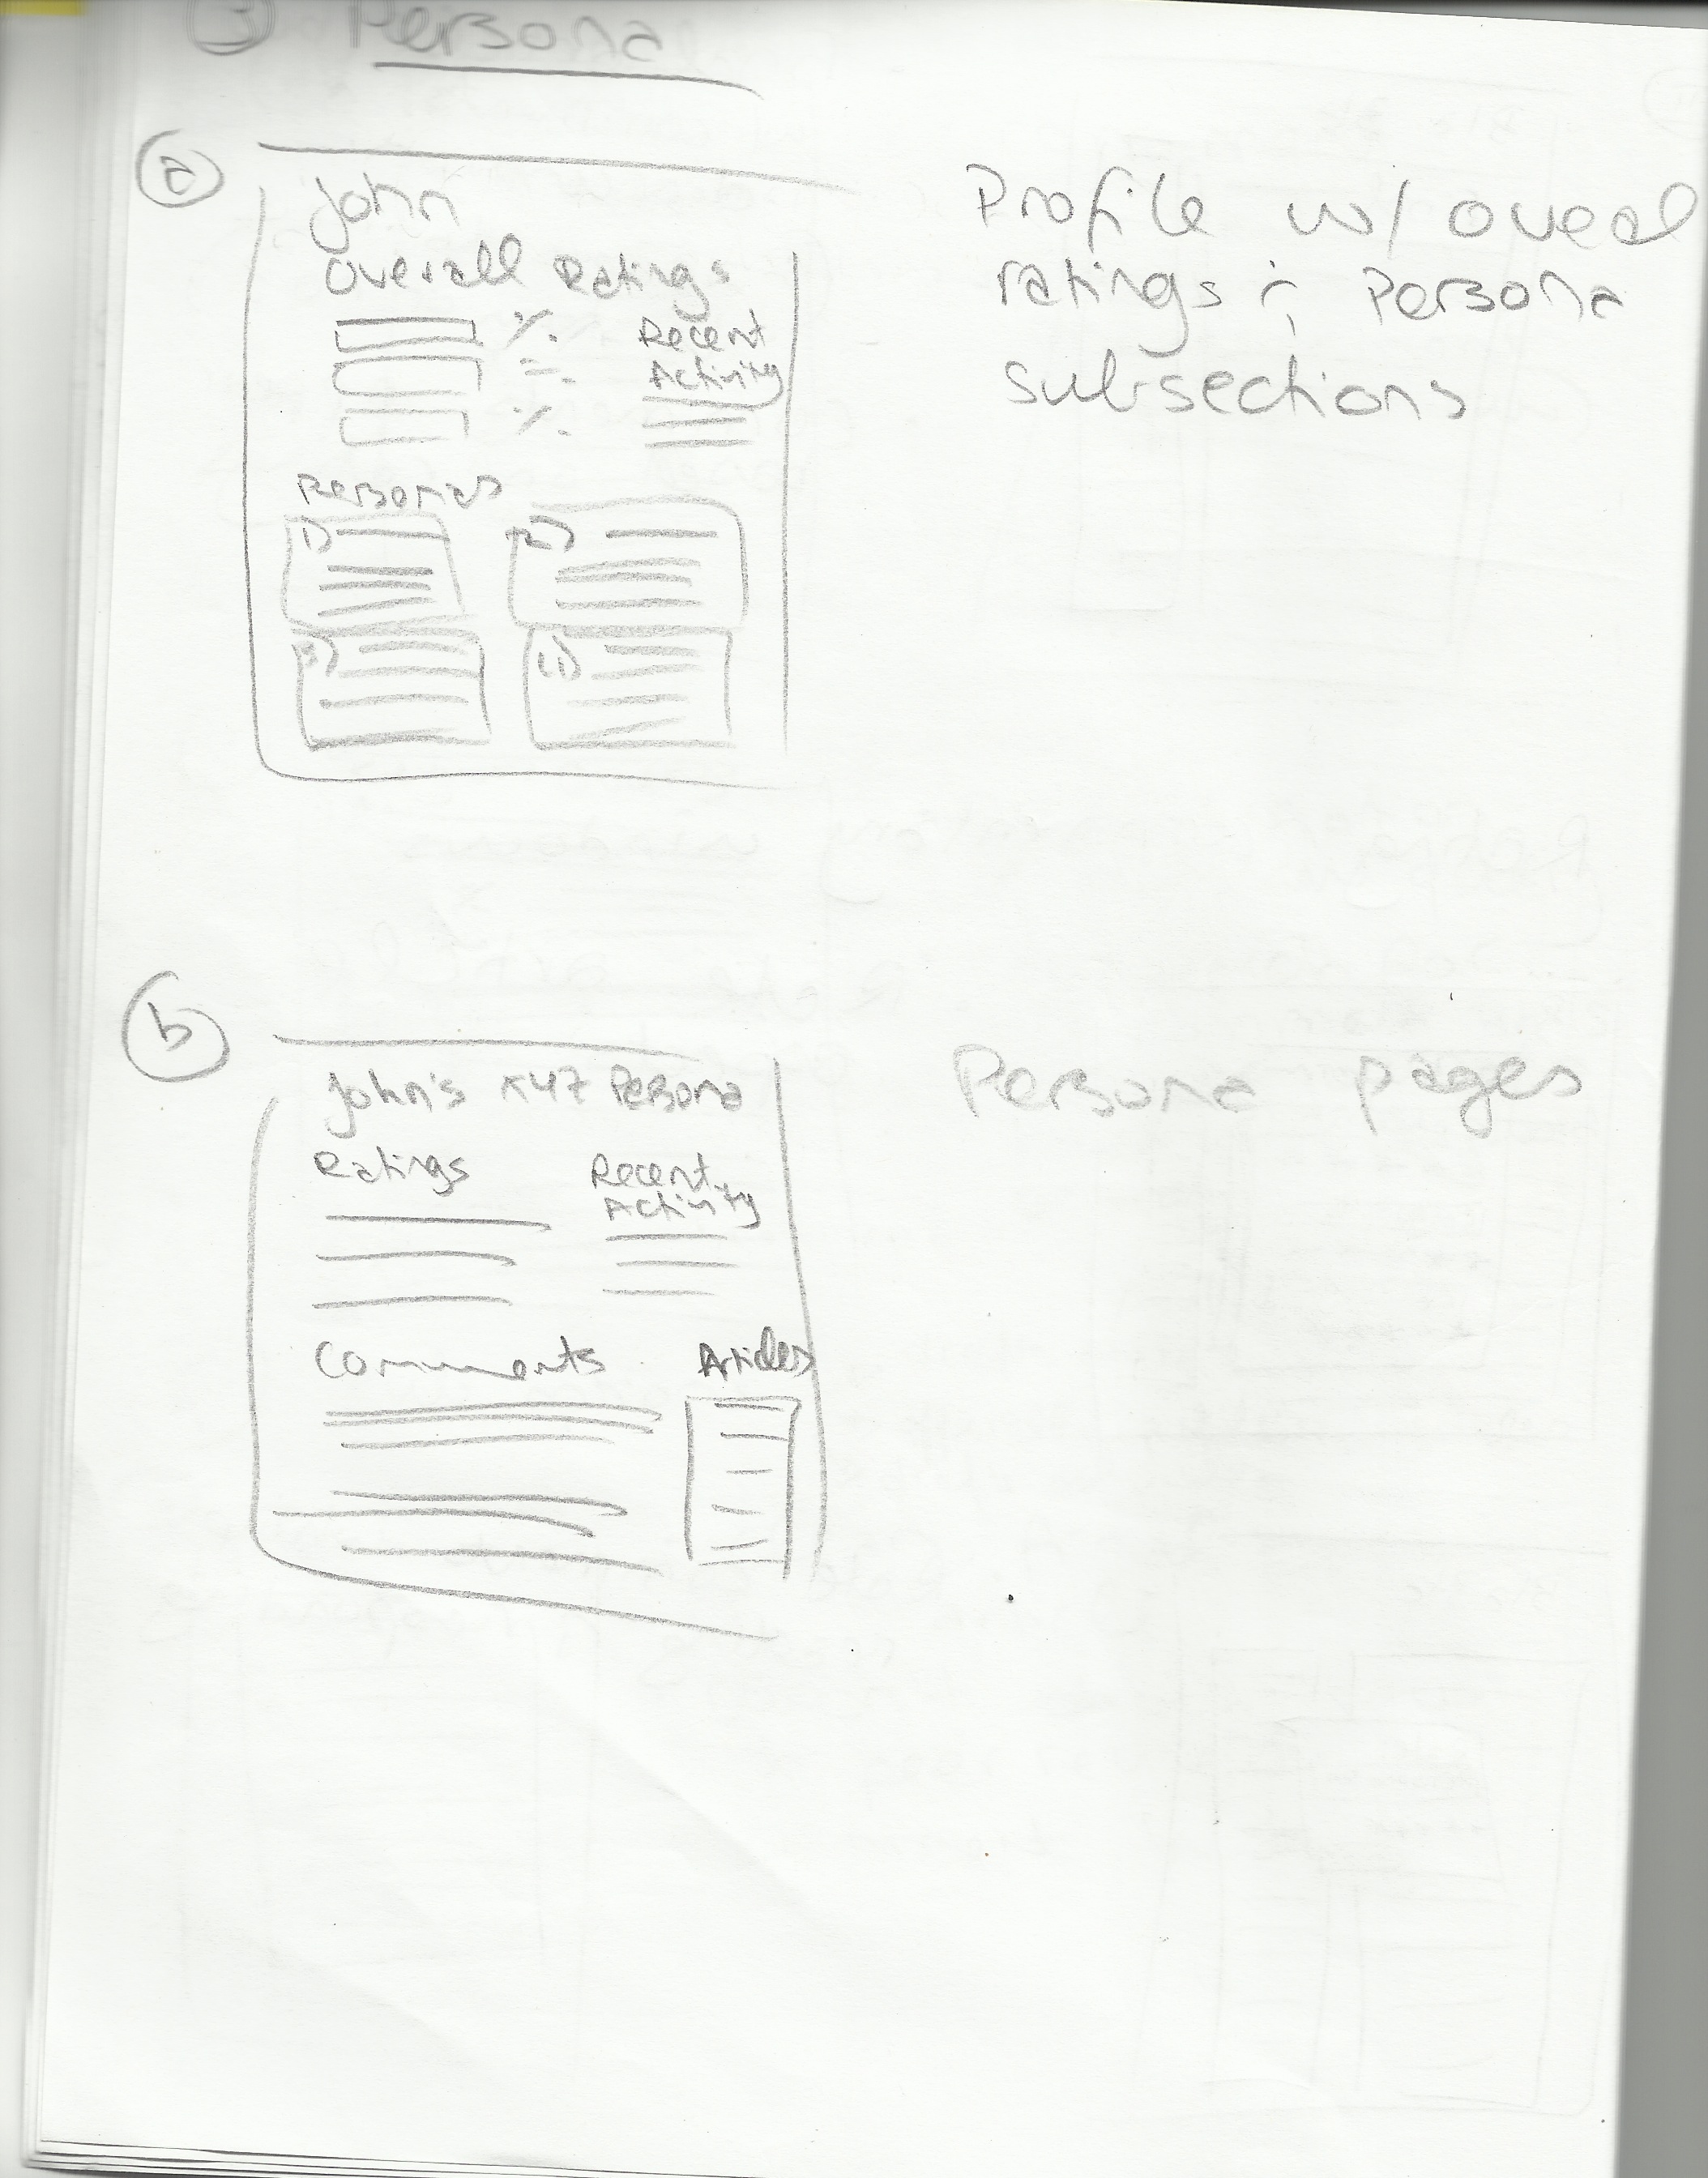 ③ Persona
ⓐ
John
Overall Ratings
%
Recent
Activity
%
Personas
1)
2)
3)
Profile w/ overal
ratings & Persona
subsections
ⓑ
John's x47 Persona
Ratings
Recent
Activity
Comments
Articles
Persona pages